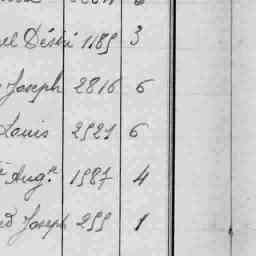 el Désiré 1189 3
Joseph 2816 6
Louis 2921 6
Aug.te 1987 4
Joseph 299 1